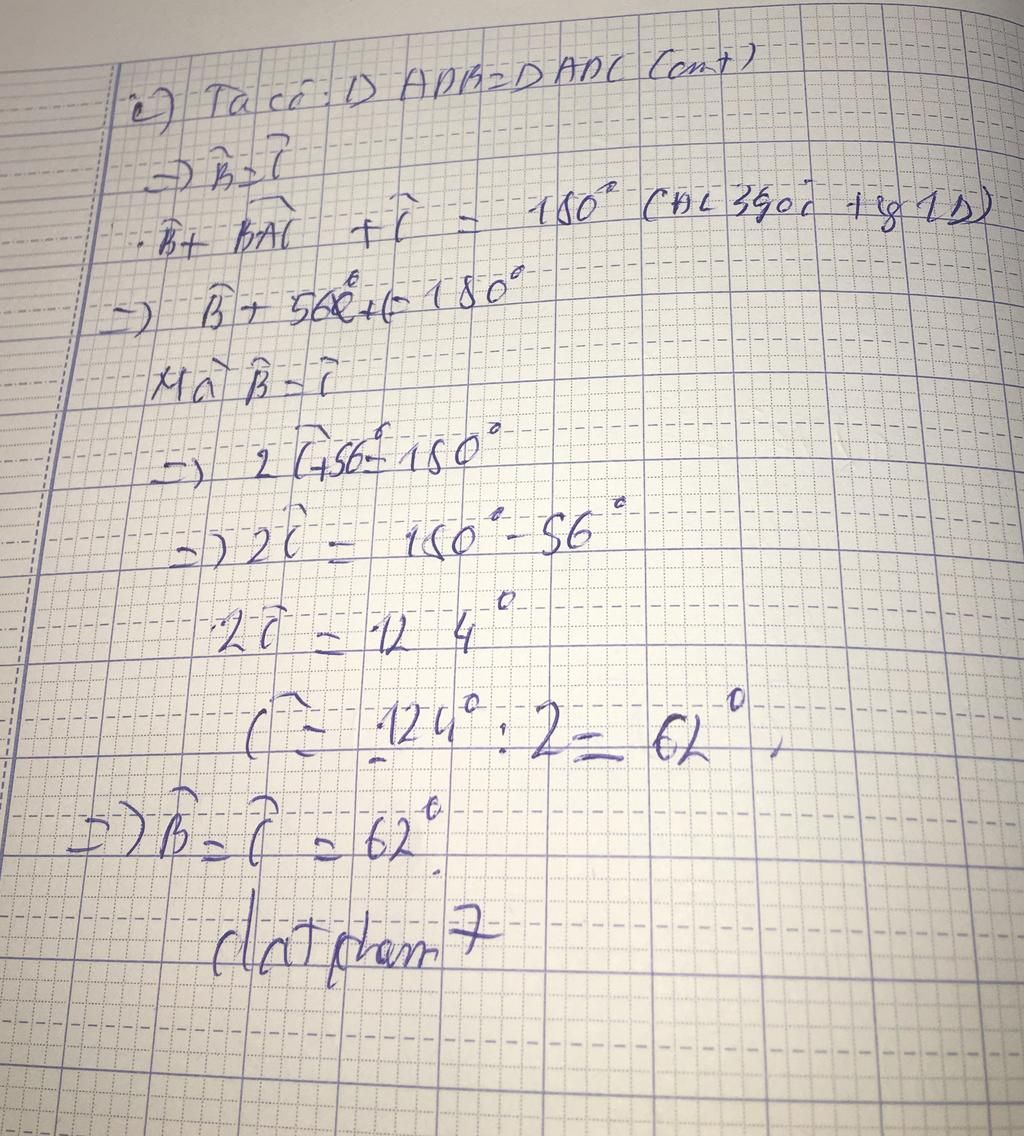 c) Ta có: Δ ADB = Δ ADC (cmt)
=> B̂ = Ĉ
B̂ + BAĈ + Ĉ = 180° (ĐL 3 góc + tg 1 Δ)
=> B̂ + 56° + Ĉ = 180°
Mà B̂ = Ĉ
=> 2Ĉ + 56° = 180°
=> 2Ĉ = 180° - 56°
2Ĉ = 124°
Ĉ = 124° : 2 = 62°,
=> B̂ = Ĉ = 62°.
datpham7